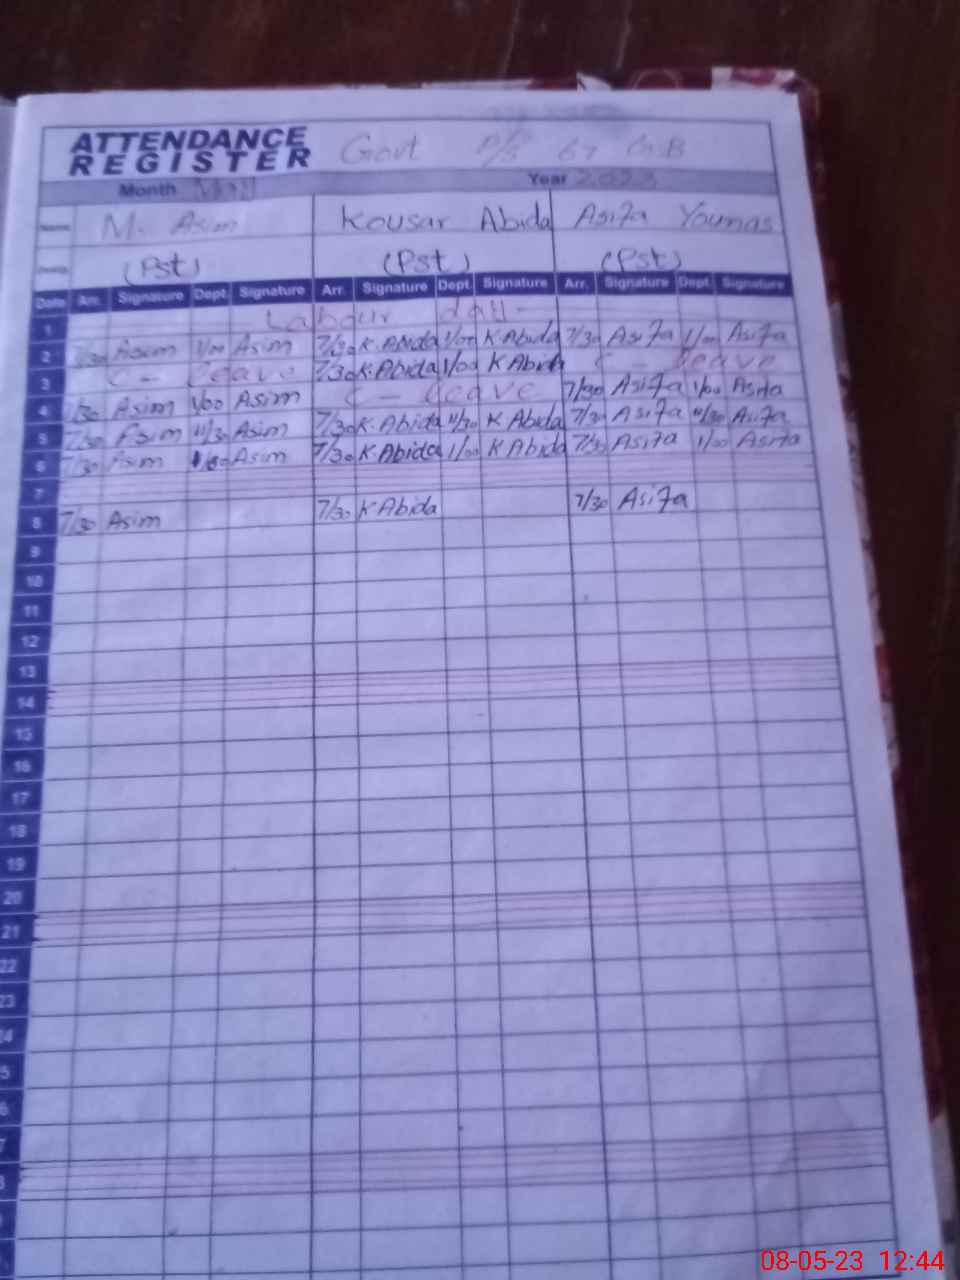 ATTENDANCE REGISTER Govt P/S 67 G.B
Month May Year 2023
Name M. Asim Kousar Abida Asifa Younas
(Pst) (Pst) (Pst)
Date Arr. Signature Dept. Signature Arr. Signature Dept. Signature Arr. Signature Dept. Signature
1 Labour day
2 7/30 Asim 1/00 Asim 7/30 K.Abida 1/00 K Abida 7/30 Asifa 1/00 Asifa
3 C - Leave 7/30 K.Abida 1/00 K Abida C - Leave
4 7/30 Asim 1/00 Asim C - Leave 7/30 Asifa 1/00 Asifa
5 7/30 Asim 11/30 Asim 7/30 K.Abida 11/30 K Abida 7/30 Asifa 11/30 Asifa
6 7/30 Asim 1/00 Asim 7/30 K Abida 1/00 K Abida 7/30 Asifa 1/00 Asifa
7
8 7/30 Asim 7/30 K Abida 7/30 Asifa
9
10
11
12
13
14
15
16
17
18
19
20
21
22
23
08-05-23 12:44